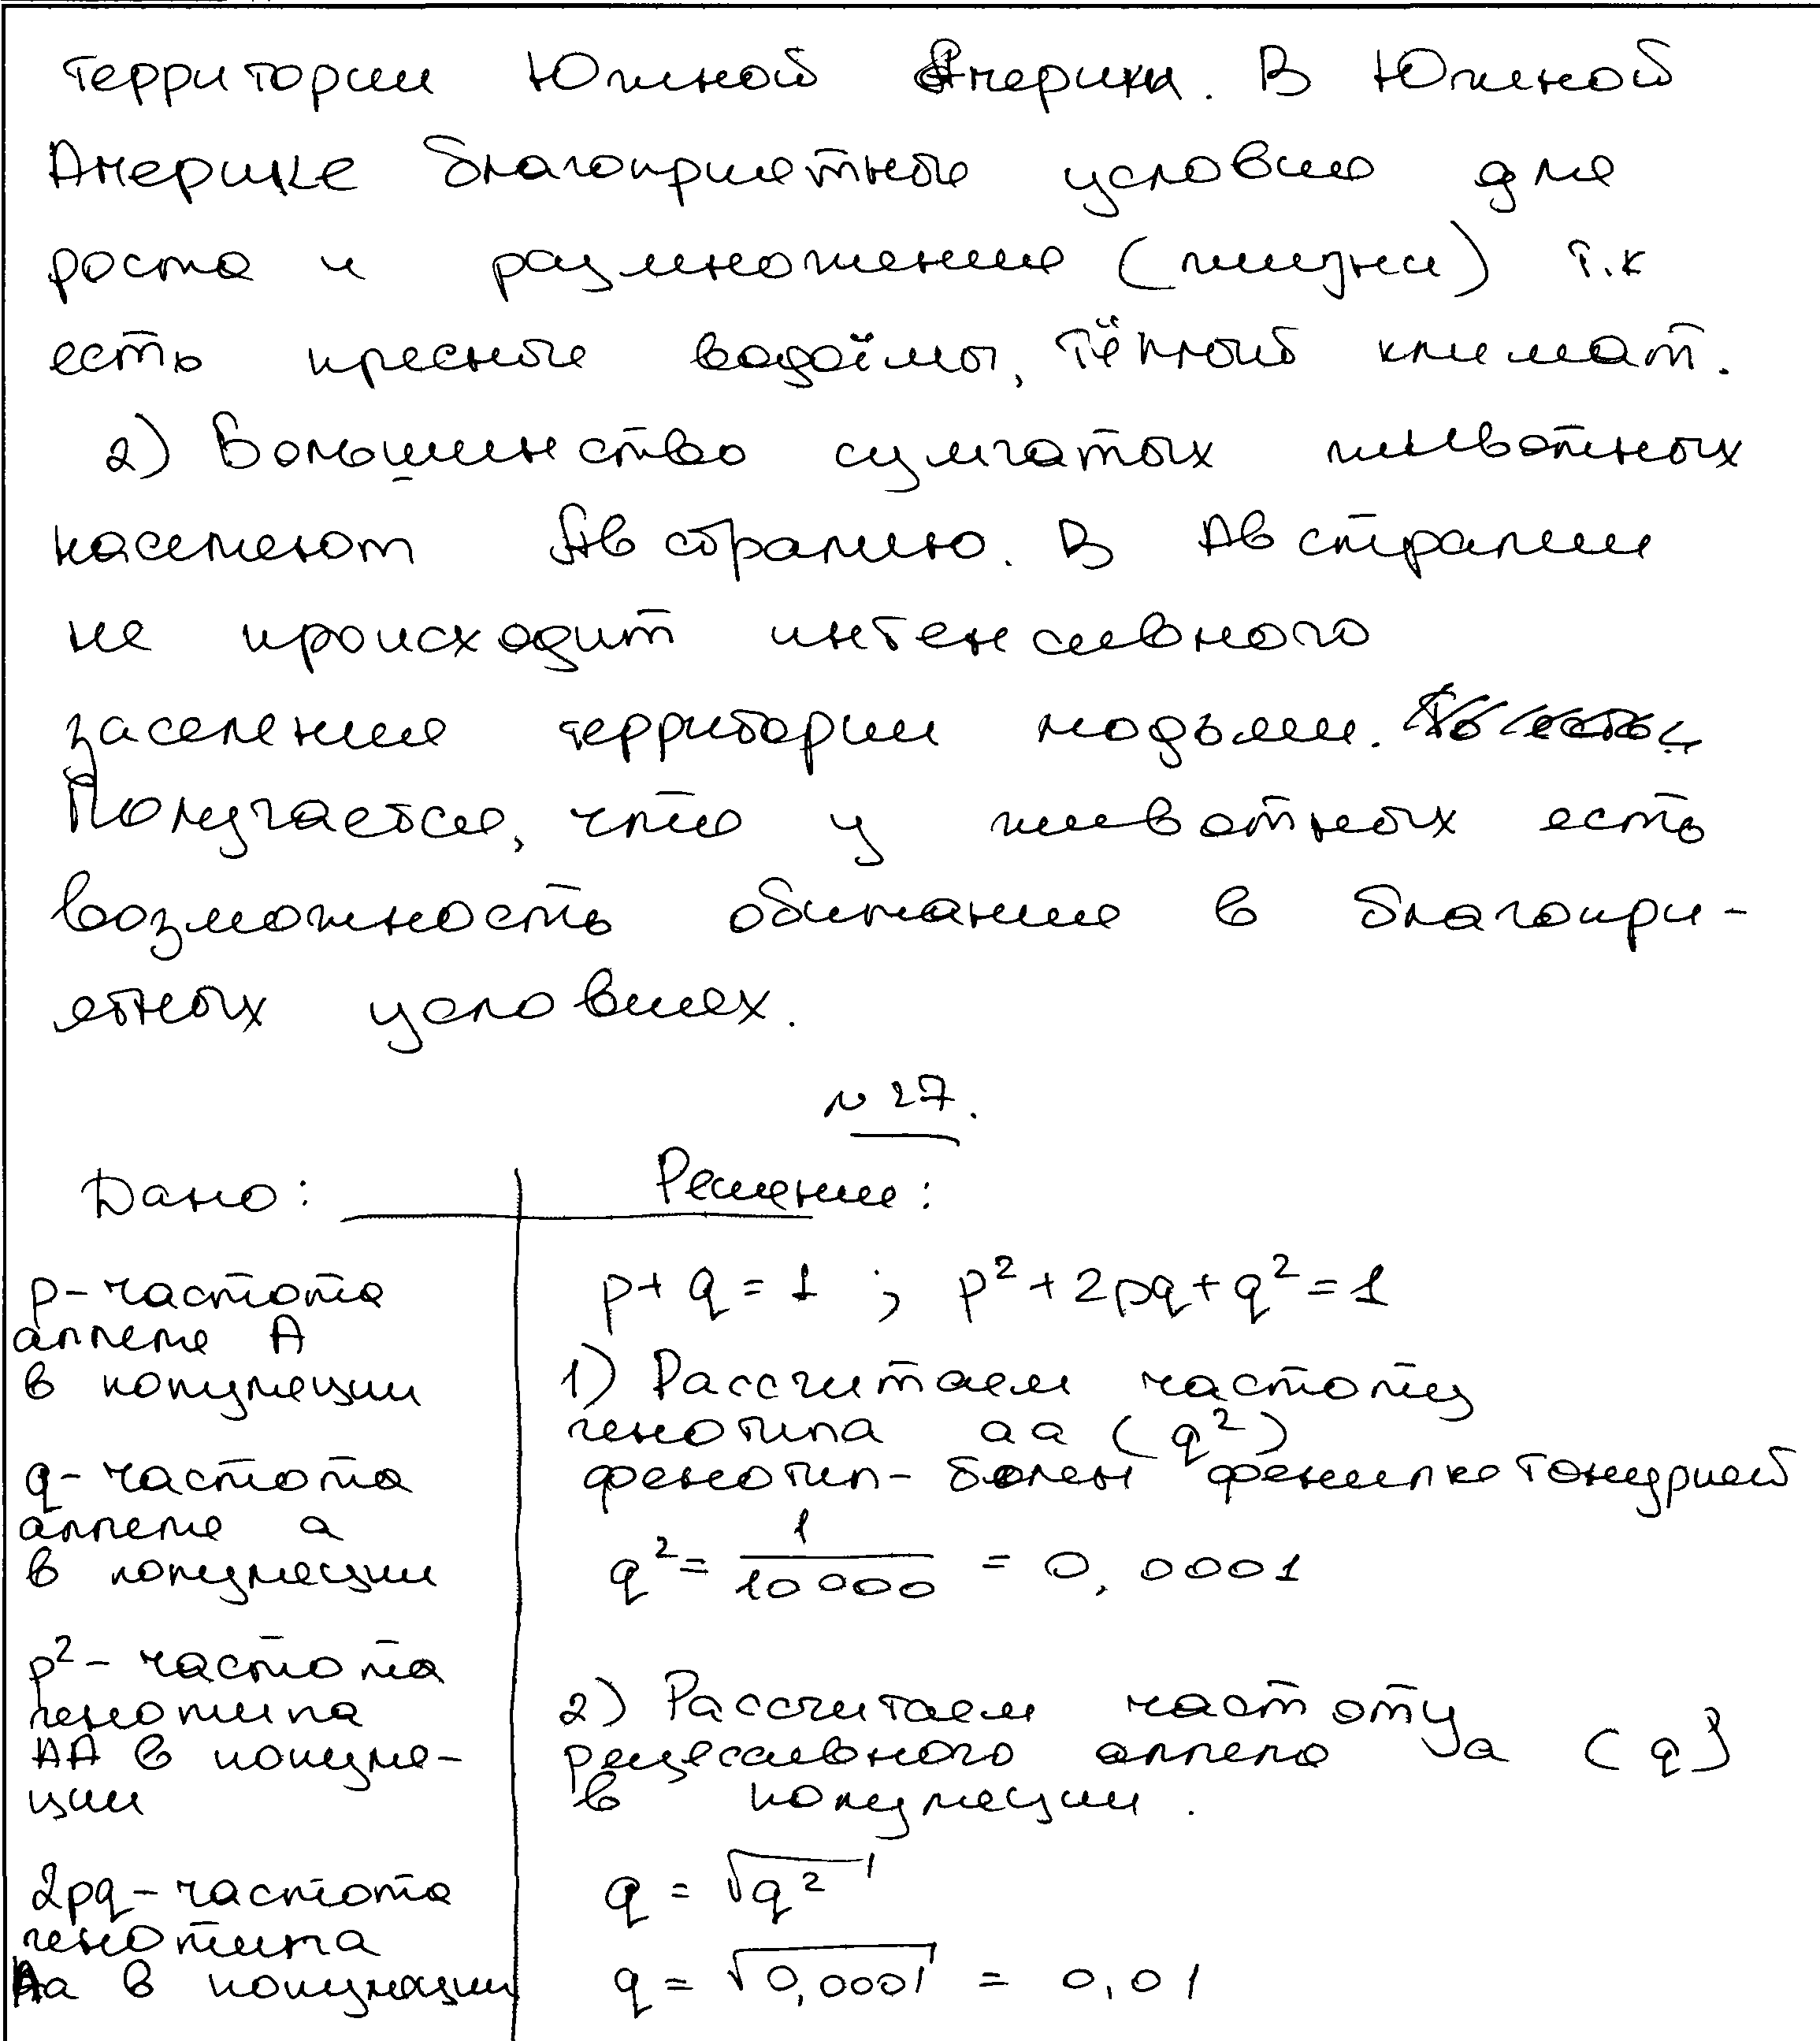 территории Южной Америки. В Южной
Америке благоприятные условия для
роста и размножения (жизни) т.к
есть пресные водоёмы, тёплый климат.
2) Большинство сумчатых животных
населяют Австралию. В Австралии
не происходит интенсивного
заселения территории людьми.
Получается, что у животных есть
возможность обитания в благопри-
ятных условиях.
№27.
Дано:
p-частота
аллеля А
в популяции
q-частота
аллеля а
в популяции
p²-частота
генотипа
АА в популя-
ции
2pq-частота
генотипа
Аа в популяции
Решение:
p+q=1 ; p²+2pq+q²=1
1) Рассчитаем частоту
генотипа аа (q²)
фенотип- болен фенилкетонурией
q² = 1/10 000 = 0,0001
2) Рассчитаем частоту
рецессивного аллеля а (q)
в популяции.
q = √q²
q = √0,0001 = 0,01